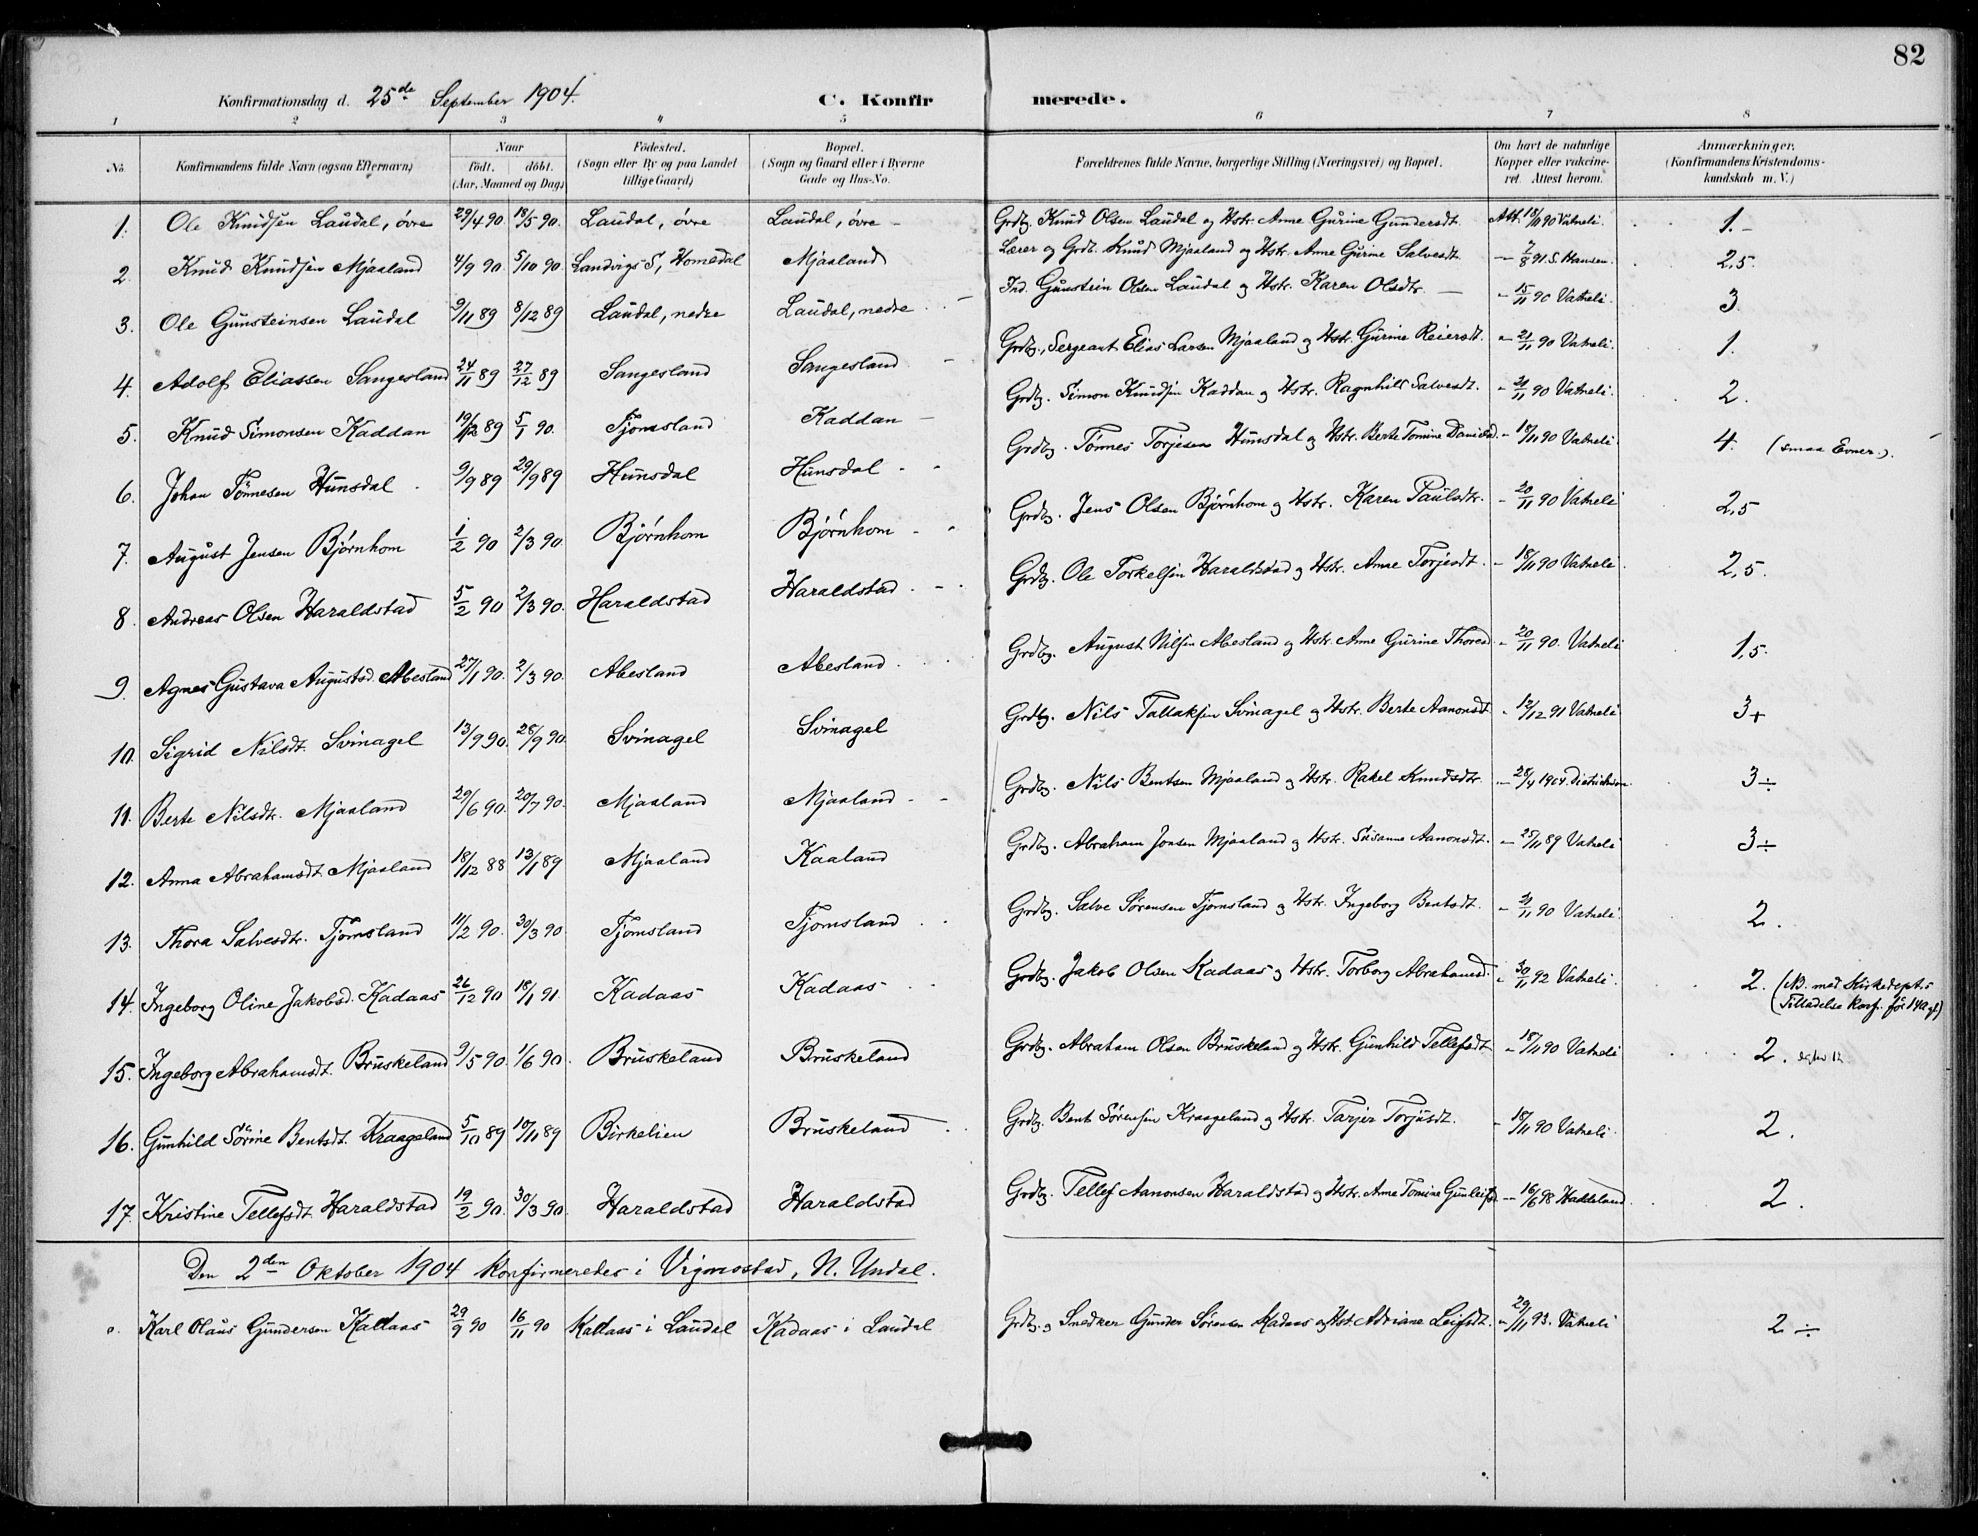 82
Konfirmationsdag d. 25de September 1904. C. Konfirmerede.
1 2 3 4 5 6 7 8
No. Konfirmandens fulde Navn (ogsaa Efternavn) Naar født. døbt. (Aar, Maaned og Dag) Fødested. (Sogn eller By og paa Landet tillige Gaard) Bopæl. (Sogn og Gaard eller i Byerne Gade og Hus-No. Forældrenes fulde Navne, borgerlige Stilling (Næringsvei) og Bopæl. Om havt de naturlige Kopper eller vakcineret. Attest herom. Anmærkninger. (Konfirmandens Kristendomskundskab m. V.)
1. Ole Knudsen Laudal, øvre 29/4 90 18/5 90. Laudal, øvre Laudal, øvre - Grdbg. Knud Olsen Laudal og Hstr. Anne Gurine Gundersdt. Att. 18/11 90 Vatneli. 1.-
2. Knud Knudsen Mjaaland 4/9 90. 5/10 90. Landvigs S, Homedal Mjaaland Lærer og Grdb. Knud Mjaaland og Hstr. Anne Gurine Salvesdt. - 7/8 91. S. Hansen. 2,5.
3. Ole Gunsteinsen Laudal 9/11 89 8/12 89 Laudal, nedre Laudal, nedre Ind. Gunstein Olsen Laudal og Hstr. Karen Olsdtr. - 15/11 90 Vatneli. 3.
4. Adolf Eliassen Sangesland 24/11 89 27/12 89 Sangesland Sangesland Grdbg., Sergeant Elias Larsen Mjaaland og Hstr. Gurine Reiersdt. - 21/11 90 Vatneli. 1.
5. Knud Simonsen Kaddan 19/12 89 5/1 90. Tjomsland Kaddan - Grdbg. Simon Knudsen Kaddan og Hstr. Ragnhild Salvesdt. - 21/11 90 Vatneli. 2.
6. Johan Tønnesen Hunsdal 9/9 89 29/9 89 Hunsdal Hunsdal Grdbg. Tønnes Torjesen Hunsdal og Hstr. Berte Tomine Danielsd. - 18/11 90 Vatneli. 4. (smaa Evner.).
7. August Jensen Bjørnhom 1/2 90 2/3 90 Bjørnhom Bjørnhom Grdbg. Jens Olsen Bjørnhom og Hstr. Karen Paulsdtr. - 20/11 90 Vatneli 2,5
8. Andreas Olsen Haraldstad 5/2 90 2/3 90. Haraldstad Haraldstad Grdbg. Ole Torkelsen Haraldstad og Hstr. Anne Torjesdt. - 18/11 90 Vatneli. 2,5.
9. Agnes Gustava Augustsd. Abesland 27/1 90. 2/3 90. Abesland Abesland Grdbg. August Nilsen Abesland og Hstr. Anne Gurine Thoresd. - 20/11 90. Vatneli 1,5.
10. Sigrid Nilsdt. Svinagel 13/9 90. 28/9 90. Svinagel Svinagel Grdbg. Nils Tallaksen Svinagel og Hstr. Berte Aanonsdt. - 12/12 91 Vatneli 3+
11. Berte Nilsdtr. Mjaaland 29/6 90. 20/7 90. Mjaaland Mjaaland Grdbg. Nils Bentsen Mjaaland og Hstr. Rakel Knudsdtr. - 28/4 1904 Dietrichson 3÷
12. Anna Abrahamsdt. Mjaaland 18/12 88 13/1 89 Mjaaland Kaaland Grdbg. Abraham Jonsen Mjaaland og Hstr. Susanne Aanonsdt. - 25/11 89 Vatneli 3÷
13. Thora Salvesdtr. Tjomsland 11/2 90. 30/3 90 Tjomsland Tjomsland Grdbg. Salve Sørensen Tjomsland og Hstr. Ingeborg Bentsdt. - 21/11 90 Vatneli. 2.
14. Ingeborg Oline Jakobsd. Kadaas 26/12 90 18/1 91. Kadaas Kadaas Grdbg. Jakob Olsen Kadaas og Hstr. Torborg Abrahamsd. - 30/11 92 Vatneli. 2. (NB. med Kirkedept.s Tilladelse konf. før 14 Ag.)
15. Ingeborg Abrahamsdt. Bruskeland 9/5 90. 1/6 90. Bruskeland Bruskeland Grdbg. Abraham Olsen Bruskeland og Hstr. Gunhild Tellefsdt. - 18/11 90 Vatneli 2.
16. Gunhild Sørine Bentsdt. Kraageland 5/10 89 10/11 89 Birkelien Bruskeland Grdbg. Bent Sørensen Kraageland og Hstr. Tarjer Torjusdt. - 18/11 90 Vatneli. 2.
17. Kristine Tellefsdt. Haraldstad 19/2 90. 30/3 90. Haraldstad Haraldstad Grdbg. Tellef Aanonsen Haraldstad og Hstr. Anne Tomine Gunleifsd. - 16/6 98 Haddeland. 2.
Den 2den Oktober 1904 konfirmeredes i Vigmostad, N. Undal.
Karl Olaus Gundersen Kaddaas 29/9 90 16/11 90 Kaddaas i Laudal Kadaas i Laudal Grdbg. og Snedker Gunder Sørensen Kadaas og Hst. Adriane Leifsdt. - 29/11 93. Vatneli 2÷